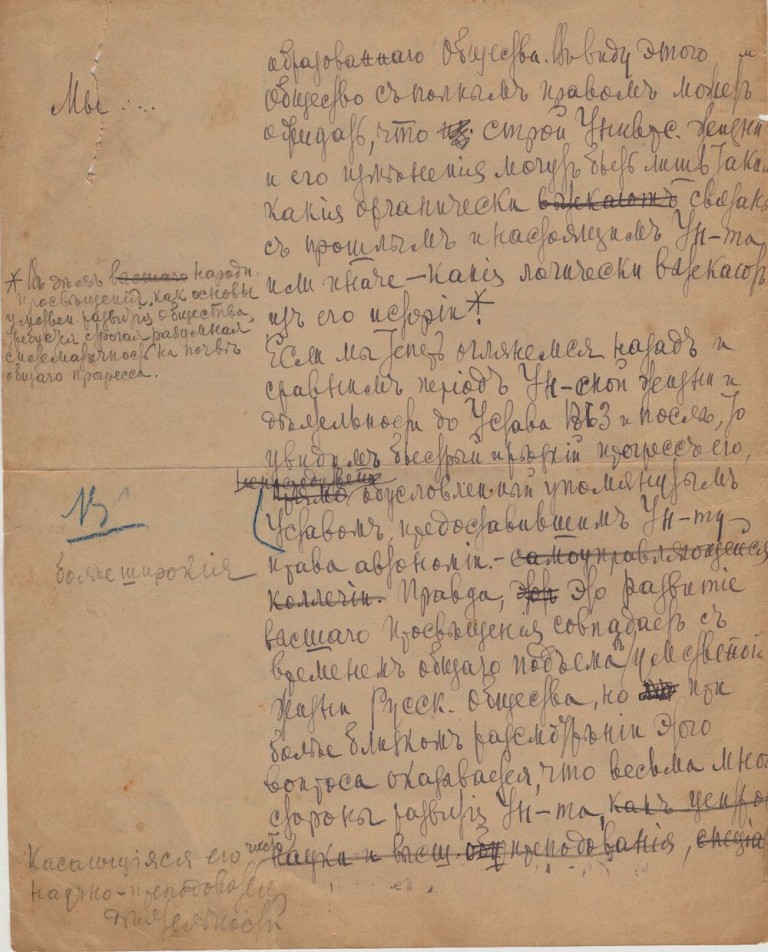 Мы ....
образованнаго Общества. Въ виду этого
Общество съ полнымъ правомъ можетъ
ожидать, что строй Универс. жизни
и его измѣненія могутъ быть лишь таки
какія органически вытекаютъ связан
съ прошлымъ и настоящимъ Ун-та,
или иначе – какія логически вытекаютъ
изъ его исторіи*.
* Въ дѣлѣ высшаго народн.
просвѣщенія, как основы
умствен. развитія общества,
требуется строгая разумная
систематичность на почвѣ
общаго прогресса.
Если мы теперь оглянемся назадъ и
сравнимъ періодъ Ун-ской жизни и
дѣятельности до Устава 1863 и послѣ, то
увидимъ быстрый и рѣдкій прогрессъ его,
непосредственно
прямо обусловленный упомянутымъ
Уставомъ, предоставившимъ Ун-ту
права автономіи. – самоуправляющейся
болѣе широкія
коллегіи. Правда, это развитіе
высшаго просвѣщенія совпадаетъ съ
временемъ общаго подъема умственной
жизни Русск. Общества, но при
болѣе близкомъ разсмотрѣніи этого
вопроса оказывается, что весьма мног
стороны развитія Ун-та, какъ центро
науки и высш. преподаванія, спеціа
Касающіяся его чисто
научно-преподоват
дѣятельности